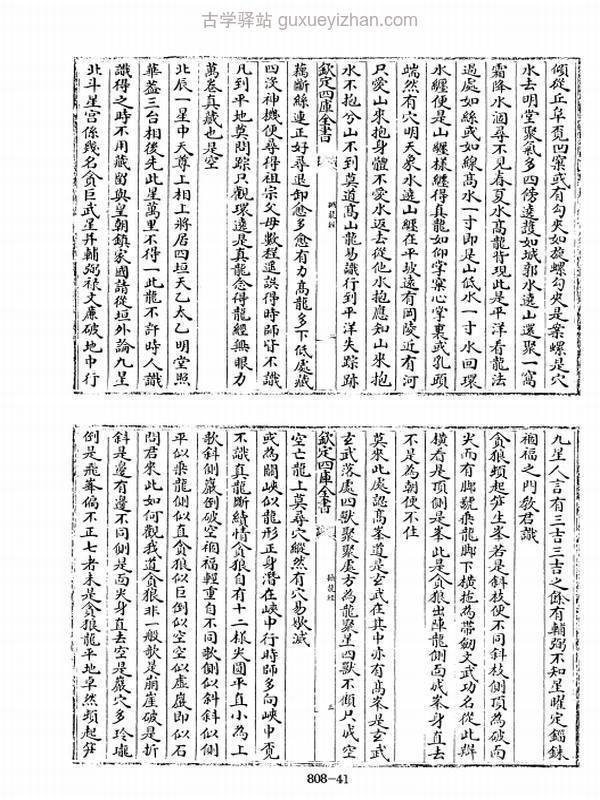 古学驿站 guxueyizhan.com
傾從丘阜覓凹窠或有勾夾如旋螺勾夾是案螺是穴
水去明堂聚氣多四傍遶護如城郭水遶山還聚一窩
霜降水涸尋不見春夏水高龍背現此是平洋看龍法
過處如絲或如線高水一寸即是山低水一寸水回環
水纏便是山纏樣纏得真龍如仰掌窠心掌裏或乳頭
端然有穴明天象水遶山纏在平坡遠有岡陵近有河
只愛山來抱身體不愛水返去從他水抱應知山來抱
水不抱兮山不到莫道高山龍易識行到平洋失踪跡
欽定四庫全書
撼龍經
藕斷絲連正好尋退卸愈多愈有力高龍多下低處藏
四沒神機便尋得祖宗父母數程遥誤得時師皆不識
凡到平地莫問踪只觀環遶是真龍念得龍經無眼力
萬卷真藏也是空
北辰一星中天尊上相上將居四垣天乙太乙明堂照
華蓋三台相後先此星萬里不得一此龍不許時人識
識得之時不用藏留與皇朝鎮家國請從垣外論九星
北斗星宫係幾名貪巨武星并輔弼禄文廉破地中行
九星人言有三吉三吉之餘有輔弼不知星曜定錙銖
禍福之門敎君識
貪狼頓起笋生峯若是斜枝便不同斜枝側頂為破面
尖而有脚號乗龍脚下横拖為帶劒文武功名從此辨
横看是頂側是峯此是貪狼出陣龍側面成峯身直去
不是為朝便不住
莫來此處認高峯道是玄武在其中亦有高峯是玄武
玄武落處四獸聚聚處方為龍聚星四獸不傾只成空
欽定四庫全書
撼龍經
三
空亡龍上莫尋穴縱然有穴易歇滅
或為關峽似龍形正身潛在峽中行時師多向峽中覓
不識真龍斷續情貪狼自有十二樣尖圓平直小為上
欹斜側巖倒破空禍福輕重自不同欹側似斜斜似側
平似乗龍側似直貪狼似巨倒似空空似虚巖即似石
問君來此如何觀我道貪狼非一般欹是崩崖破是折
斜是邊有邊不同側是面尖身直去空是巖穴多玲瓏
倒是飛峯偏不正七者未是貪狼龍平地卓然頓起笋
808-41